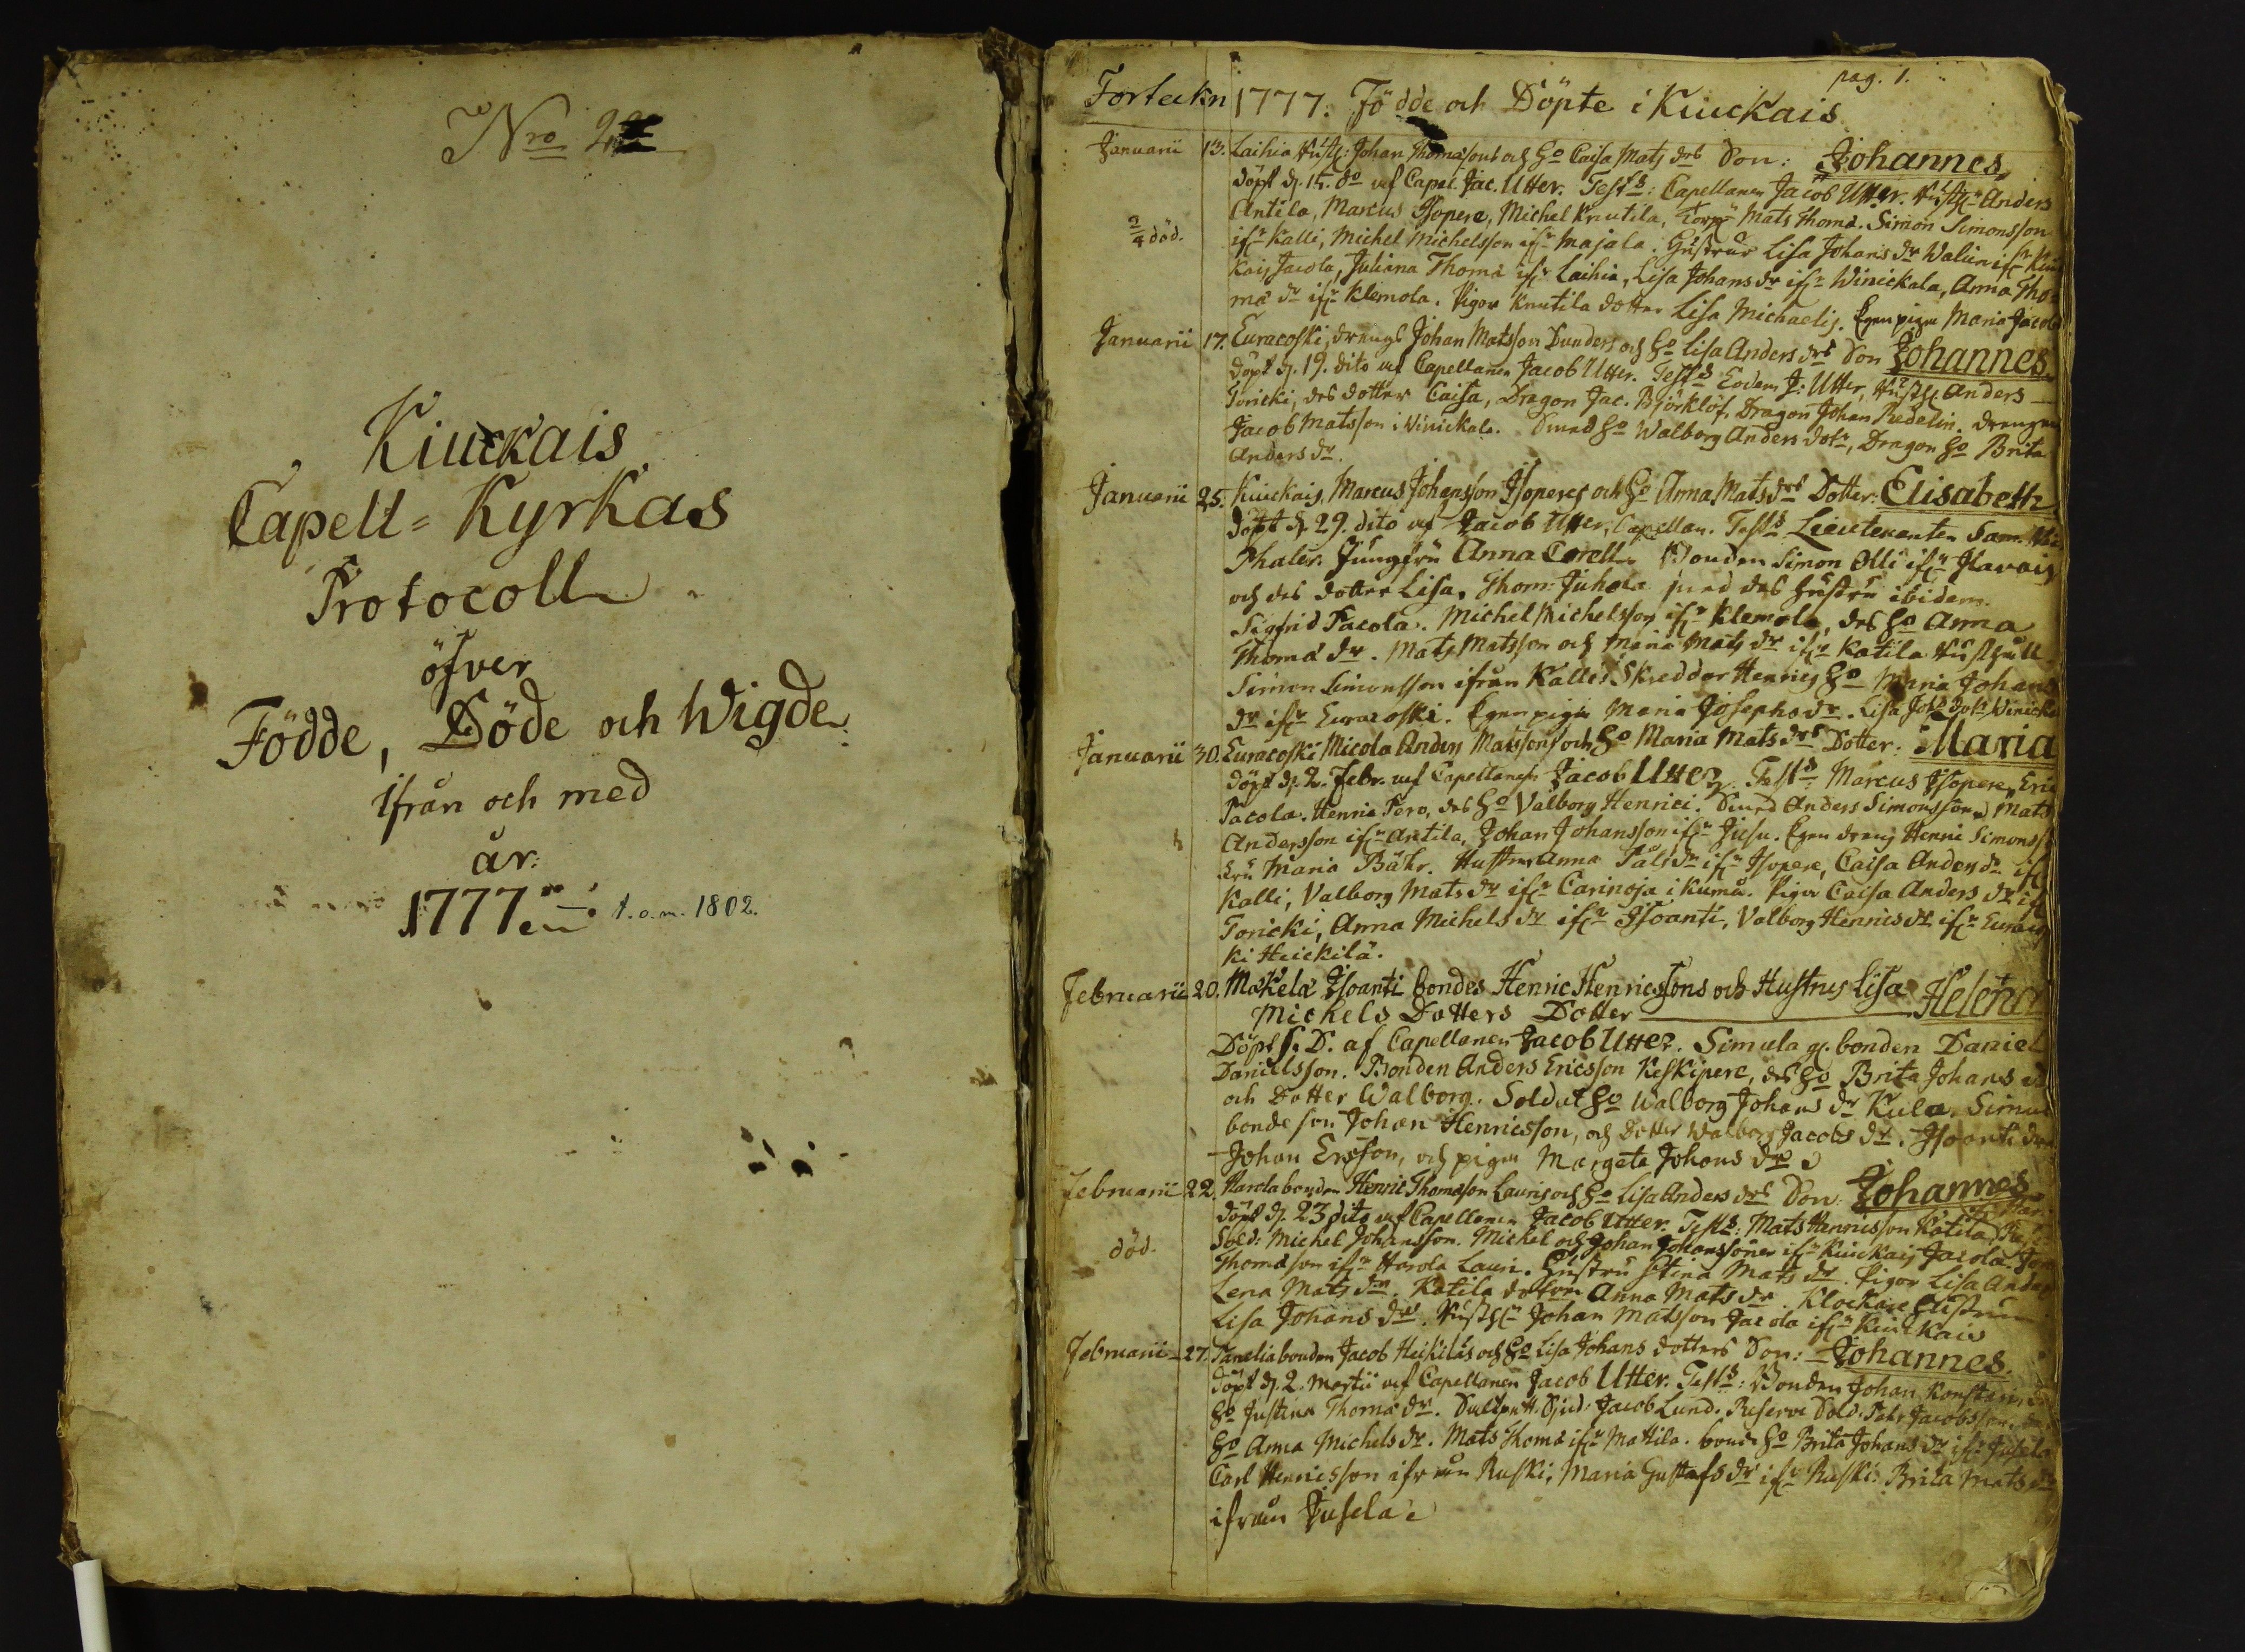 Nro 2
Kiuckais
Capell=Kyrkas
Protocoll
öfver
Födde, Döde och Wigde
ifrån och med
år:
1777. t.o.m. 1802.
pag. 1.
Forteckn 1777. Födde och Döpte i Kiuckais
Januarii 13. Laihia Johan Thomæsons och Ho Caisa Mats drs Son: Johannes
döpt d. 15. do af Capel. Jac. Utter. Test: Capellanen Jacob Utter. Anders
Antila, Marcus Isopere, Michel Knutila, Torp Mats Thomæ. Simon Simonsson
2/4 död. ifr Kalli, Michel Michelsson ifr Majala. Hustrur Lisa Johans dr Walin ifr
Jacola, Juliana Thomæ ifr Laihia, Lisa Johans dr ifr Winickala, Anna Tho-
mæ dr ifr Klemola. Pigor Knutila dotter Lisa Michaelis. Egen pigan Maria Jacob
Januarii 17. Euracoski, drengs Johan Matsson Dunders och Ho Lisa Anders drs Son Johannes
döpt d. 19. dito af Capellanen Jacob Utter. Test Eodem J: Utter, Anders
Toricki, des dotter Caisa, Dragon Jac. Björklöf, Dragon Johan Redelin. drengen
Jacob Matsson i Winickala. Smed Ho Walborg Anders dotr, Dragon Ho Brita
Anders dr.
Januarii 25. Kiuckais, Marcus Johansson Isoperes och Ho Anna Mats drs Dotter: Elisabeth
döpt d. 29. dito af Jacob Utter, Capellan. Test Lieutenanten Sam.
Phaler. Jungfru Anna Corell. Bonden Simon Olli ifr Harois
och des dotter Lisa, Thom: Juhola med des hustru ibidem.
Sigfrid Pacola. Michel Michelsson ifr Klemola, des Ho Anna
Thomæ dr. Mats Matsson och Maria Mats dr ifr Katila
Simon Simonsson ifrån Kalli Skreddar Henrics Ho Maria Johans
dr ifr Euracoski. Egen pigan Maria Josephs dr. Lisa Joh dotr
Januarii 30. Euracoski Micola Anders Matssons och Ho Maria Mats drs Dotter: Maria
döpt d. 2. Febr. af Capellanen Jacob Utter. Test Marcus Isopere, Eric
Pacola. Henric Pero, des Ho Valborg Henrici. Smed Anders Simonsson, Mats
Andersson ifr Antila, Johan Johansson ifr Jusu. Egen dreng Henric Simonss
Maria Bähr. Hustrur Anna Påls dr ifr Isopere, Caisa Anders dr ifr
Kalli, Valborg Mats dr ifr Carinoja i Kumå. Pigor Caisa Anders dr ifr
Toricki, Anna Michels dr ifr Isoanti, Valborg Henrics dr ifr
ki Heickilä.
Februarii 20. Mäkelä Isoanti bondes Henric Henricssons och Hustrus Lisa Helena
Mickels Dotters Dotter
Döpt S. D. af Capellanen Jacob Utter. Simula g. bonden Daniel
Danielsson. Bonden Anders Ericsson Keskipere, des Ho Brita Johans
och Dotter Walborg. Soldat Ho Walborg Johans dr Kula. Simula
bonde son Johan Henricsson, och Dotter Walborg Jacobs dr. Isoanti
Johan Ersson, och pigan Margeta Johans dr
Februarii 22. Harola bonden Henric Thomæson Lauris och Ho Lisa Anders drs Son: Johannes
döpt d. 23 dito af Capellanen Jacob Utter. Test: Mats Henricsson Katila
död. Sold: Michel Johansson. Michel och Johan Johanssöner ifr Kiuckais Jacola.
Thomæson ifr Harola Lauri. Hustru Stina Mats dr. Pigor Lisa Anders
Lena Mats dr. Katila dotren Anna Mats dr. Klockare hustrun
Lisa Johans dr. Johan Matsson Jacola ifr Kiuckais
Februarii 27. Panelia bonden Jacob Heikiläs och Ho Lisa Johans dotters Son: Johannes.
döpt d. 2. Martii af Capellanen Jacob Utter. Test: Bonden Johan
Ho Justina Thomæ dr. Jacob Lund. Reserve Sold: Petr Jacobsson.
Ho Anna Michels dr. Mats Thomæ ifr Mattila. bonde Ho Brita Johans dr ifr
Carl Henricsson ifrån Ruski, Maria Gustafs dr ifr Ruski. Brita Mats
ifrån Jusela